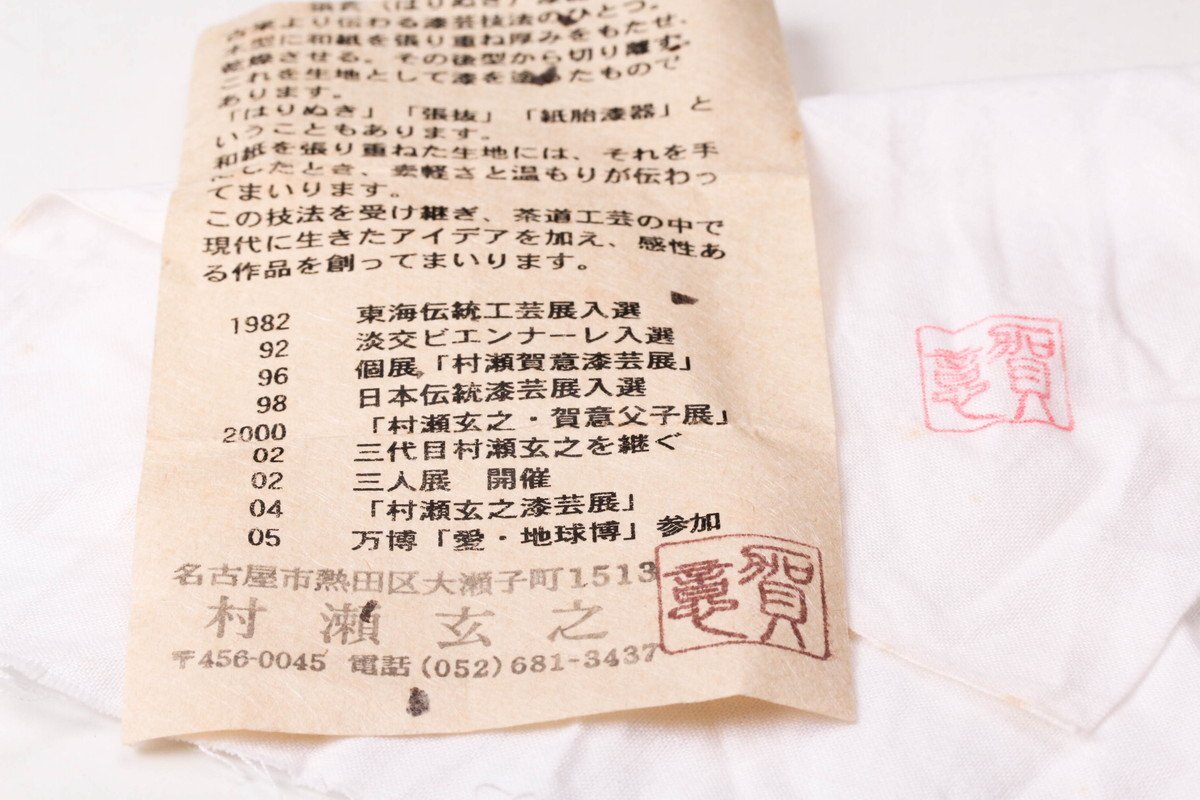 古来より伝わる漆芸技法のひとつ。
木型に和紙を張り重ね厚みをもたせ、
乾燥させる。その後型から切り離す。
これを生地として漆を塗ったもので
あります。
「はりぬき」「張抜」「紙胎漆器」と
いうこともあります。
和紙を張り重ねた生地には、それを手
にしたとき、素軽さと温もりが伝わっ
てまいります。
この技法を受け継ぎ、茶道工芸の中で
現代に生きたアイデアを加え、感性あ
る作品を創ってまいります。
1982 東海伝統工芸展入選
92 淡交ビエンナーレ入選
96 個展「村瀬賀意漆芸展」
98 日本伝統漆芸展入選
2000 「村瀬玄之・賀意父子展」
02 三代目村瀬玄之を継ぐ
02 三人展 開催
04 「村瀬玄之漆芸展」
05 万博「愛・地球博」参加
名古屋市熱田区大瀬子町1513
村瀬玄之
〒456-0045 電話(052)681-3437
賀意
賀意